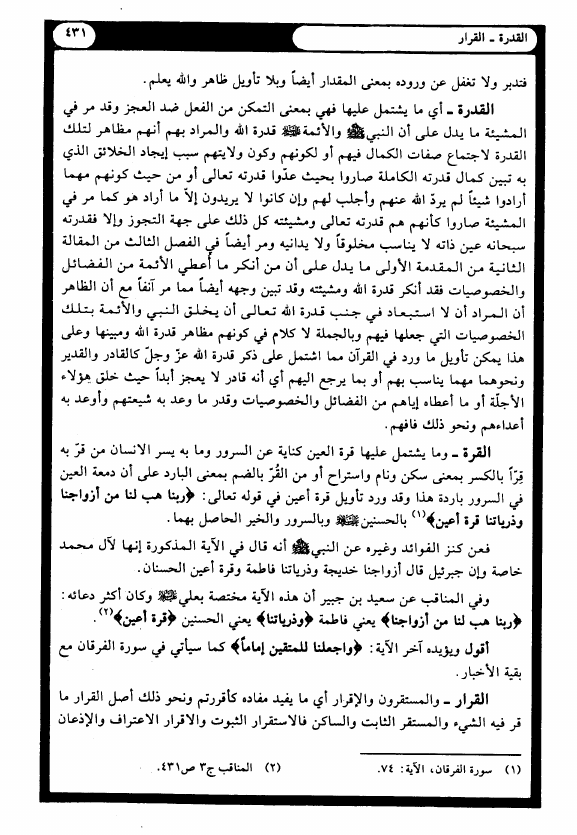 القدرة ـ القرار
٤٣١
فتدبر ولا تغفل عن وروده بمعنى المقدار أيضاً وبلا تأويل ظاهر والله يعلم.
القدرة ـ أي ما يشتمل عليها فهي بمعنى التمكن من الفعل ضد العجز وقد مر في
المشيئة ما يدل على أن النبي ﷺ والأئمة قدرة الله والمراد بهم أنهم مظاهر لتلك
القدرة لاجتماع صفات الكمال فيهم أو لكونهم وكون ولايتهم سبب إيجاد الخلائق الذي
به تبين كمال قدرته الكاملة صاروا بحيث عدّوا قدرته تعالى أو من حيث كونهم مهما
أرادوا شيئاً لم يردّ الله عنهم وأجلب لهم وإن كانوا لا يريدون إلاّ ما أراد هو كما مر في
المشيئة صاروا كأنهم هم قدرته تعالى ومشيئته كل ذلك على جهة التجوز وإلا فقدرته
سبحانه عين ذاته لا يناسب مخلوقاً ولا يدانيه ومر أيضاً في الفصل الثالث من المقالة
الثانية من المقدمة الأولى ما يدل على أن من أنكر ما أعطي الأئمة من الفضائل
والخصوصيات فقد أنكر قدرة الله ومشيئته وقد تبين وجهه أيضاً مما مر آنفاً مع أن الظاهر
أن المراد أن لا استبعاد في جنب قدرة الله تعالى أن يخلق النبي والأئمة بتلك
الخصوصيات التي جعلها فيهم وبالجملة لا كلام في كونهم مظاهر قدرة الله ومبينها وعلى
هذا يمكن تأويل ما ورد في القرآن مما اشتمل على ذكر قدرة الله عزّ وجلّ كالقادر والقدير
ونحوهما مهما يناسب بهم أو بما يرجع اليهم أي أنه قادر لا يعجز أبداً حيث خلق هؤلاء
الأجلّة أو ما أعطاه إياهم من الفضائل والخصوصيات وقدر ما وعد به شيعتهم وأوعد به
أعداءهم ونحو ذلك فافهم.
القرة ـ وما يشتمل عليها قرة العين كناية عن السرور وما به يسر الانسان من قرّ به
قِرّاً بالكسر بمعنى سكن ونام واستراح أو من القُرّ بالضم بمعنى البارد على أن دمعة العين
في السرور باردة هذا وقد ورد تأويل قرة أعين في قوله تعالى: ﴿ربنا هب لنا من أزواجنا
وذرياتنا قرة أعين﴾(١) بالحسنين وبالسرور والخير الحاصل بهما.
فعن كنز الفوائد وغيره عن النبي ﷺ أنه قال في الآية المذكورة إنها لآل محمد
خاصة وإن جبرئيل قال أزواجنا خديجة وذرياتنا فاطمة وقرة أعين الحسنان.
وفي المناقب عن سعيد بن جبير أن هذه الآية مختصة بعلي وكان أكثر دعائه:
﴿ربنا هب لنا من أزواجنا﴾ يعني فاطمة ﴿وذرياتنا﴾ يعني الحسنين ﴿قرة أعين﴾(٢).
أقول ويؤيده آخر الآية: ﴿واجعلنا للمتقين إماماً﴾ كما سيأتي في سورة الفرقان مع
بقية الأخبار.
القرار ـ والمستقرون والإقرار أي ما يفيد مفاده كأقررتم ونحو ذلك أصل القرار ما
قر فيه الشيء والمستقر الثابت والساكن فالاستقرار الثبوت والاقرار الاعتراف والإذعان
(١) سورة الفرقان، الآية: ٧٤. (٢) المناقب ج٣ ص٤٣١.